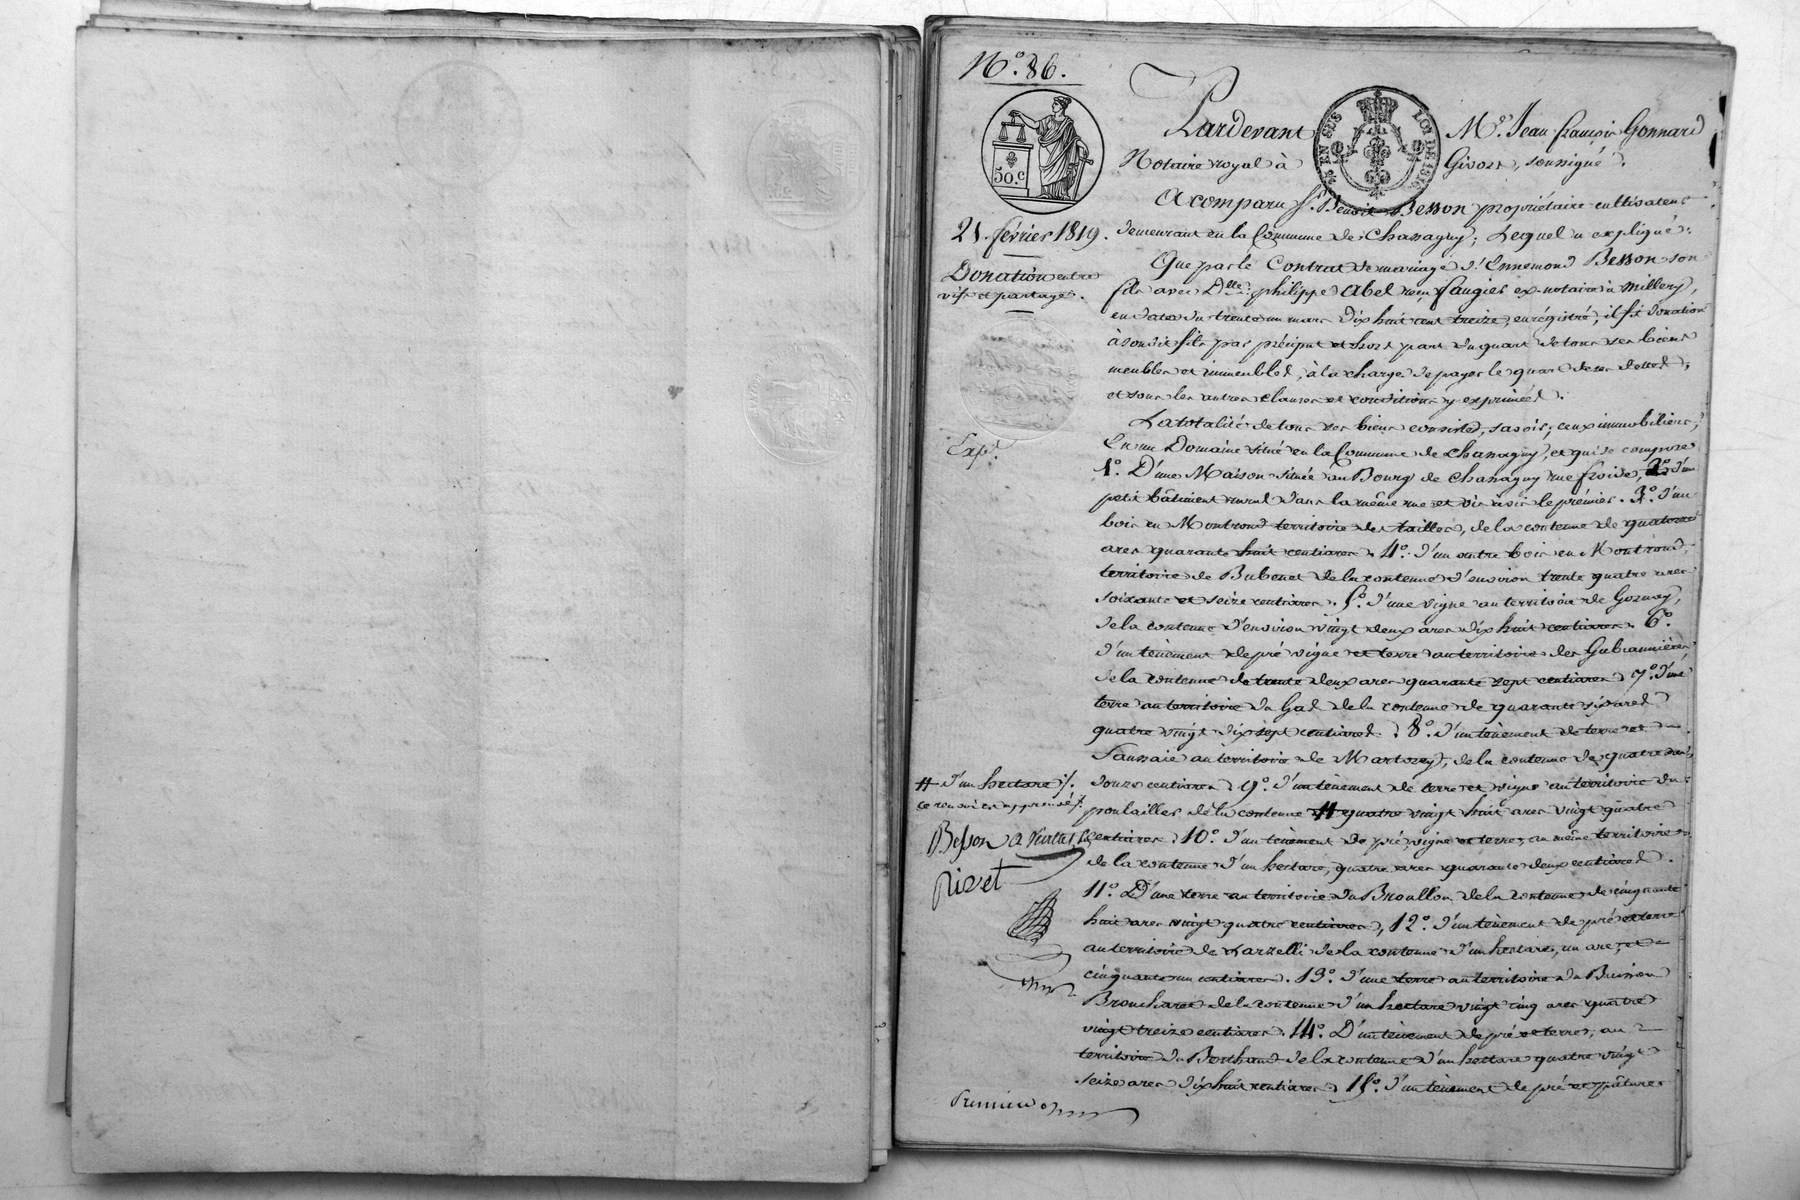 N.° 86.
50.c
25 EN SUS LOI DE 1816
Pardevant M.e Jean françois Gonnard
Notaire royal à Givors, soussigné.
A comparu S.r Benoit Besson propriétaire cultivateur
21. février 1819.
demeurant en la Commune de Chassagny; Lequel a expliqué:
Donation entre
vifs et partage.
Que par le Contrat de mariage d'Ennemond Besson son
fils avec D.lle philippe Abel reçu faugier ex-notaire à Millery,
en date du trente un mars dix huit cent treize, enrégistré, il fit donation
à son dit fils par préciput et hors part du quart de tous ses biens
meubles et immeubles, à la charge de payer le quart de ses dettes,
et sous les autres clauses et conditions y exprimées.
La totalité de tous ses biens consiste, savoir; ceux immobiliers,
Exp.
En un Domaine situé en la Commune de Chassagny, et qui se compose
1.° D'une Maison située au Bourg de Chassagny rue froide, 2.° d'un
petit bâtiment rural dans la même rue et vis à vis le prémier. 3.° d'un
bois en Montrond territoire des tailles, de la contenue de quatorze
ares quarante huit centiares. 4.° d'un autre bois en Montrond,
territoire de Bubenet de la contenue d'environ trente quatre ares
soixante et seize centiares. 5.° d'une vigne au territoire de Gornay,
de la contenue d'environ vingt deux ares dix huit centiares. 6.°
d'un tènement de pré vigne et terre au territoire des
de la contenue de trente deux ares quarante sept centiares 7.° d'une
terre au territoire du Gad de la contenue de quarante six ares
quatre vingt dix sept centiares. 8.° d'un tènement de terre et
Saussaie au territoire de Martorey, de la contenue de quatre ares
# d'un hectare /.
ce renvoi est approuvé /.
douze centiares 9.° d'un tènement de terre et vigne au territoire du
poulailler de la contenue # quatre vingt huit ares vingt quatre
Besson
Rivet
centiares. 10.° d'un tènement de pré, vigne et terre, au même territoire
de la contenue d'un hectare, quatre ares quarante deux centiares.
11.° D'une terre au territoire du Brouillon de la contenue de cinquante
huit ares vingt quatre centiares, 12.° d'un tènement de pré et terre
au territoire de Karzelli de la contenue d'un hectare, un are, et
cinquante un centiares. 13.° d'une terre au territoire du Buisson
Brouchard de la contenue d'un hectare vingt cinq ares quatre
vingt treize centiares. 14.° D'un tènement de pré et terre, au
territoire du Berthaud de la contenue d'un hectare quatre vingt
seize ares dix huit centiares 15.° d'un tènement de pré et pâture
Premier